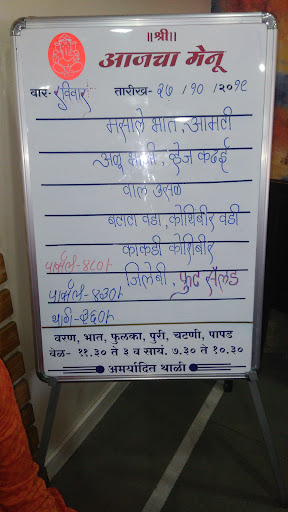 ॥श्री॥
आजचा मेनू
वार- रविवार तारीख- २७ /१० /२०१९
मसाले भात, आमटी
अळू भाजी, व्हेज कढई
वाल उसळ
बटाटा वडा, कोथिंबीर वडी
काकडी कोशिंबीर
जिलेबी, फ्रुट सॅलड
पार्सल- ४८०/-
पार्सल- ४३०/-
थाळी- ३६०/-
वरण, भात, फुलका, पुरी, चटणी, पापड
वेळ- ११.३० ते ३ व सायं. ७.३० ते १०.३०
अमर्यादित थाळी